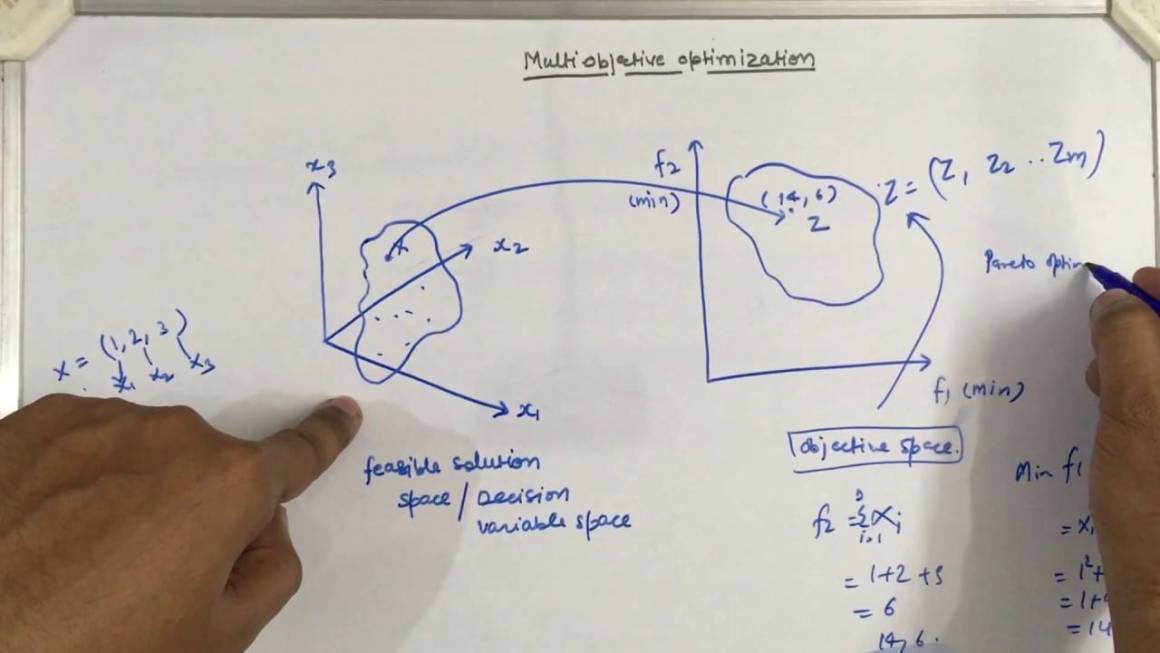 Multiobjective optimization
x3
x2
x1
x = (1, 2, 3)
x1 x2 x3
x
feasible solution
space / Decision
variable space
f2
(min)
(14, 6)
Z
Z = (Z1 Z2 .. Zm)
f1 (min)
objective space.
Pareto optim
f2 = Σ xi
i=1
= 1+2+3
= 6
14, 6.
Min f1
= x
= 1²+
= 1+
= 14